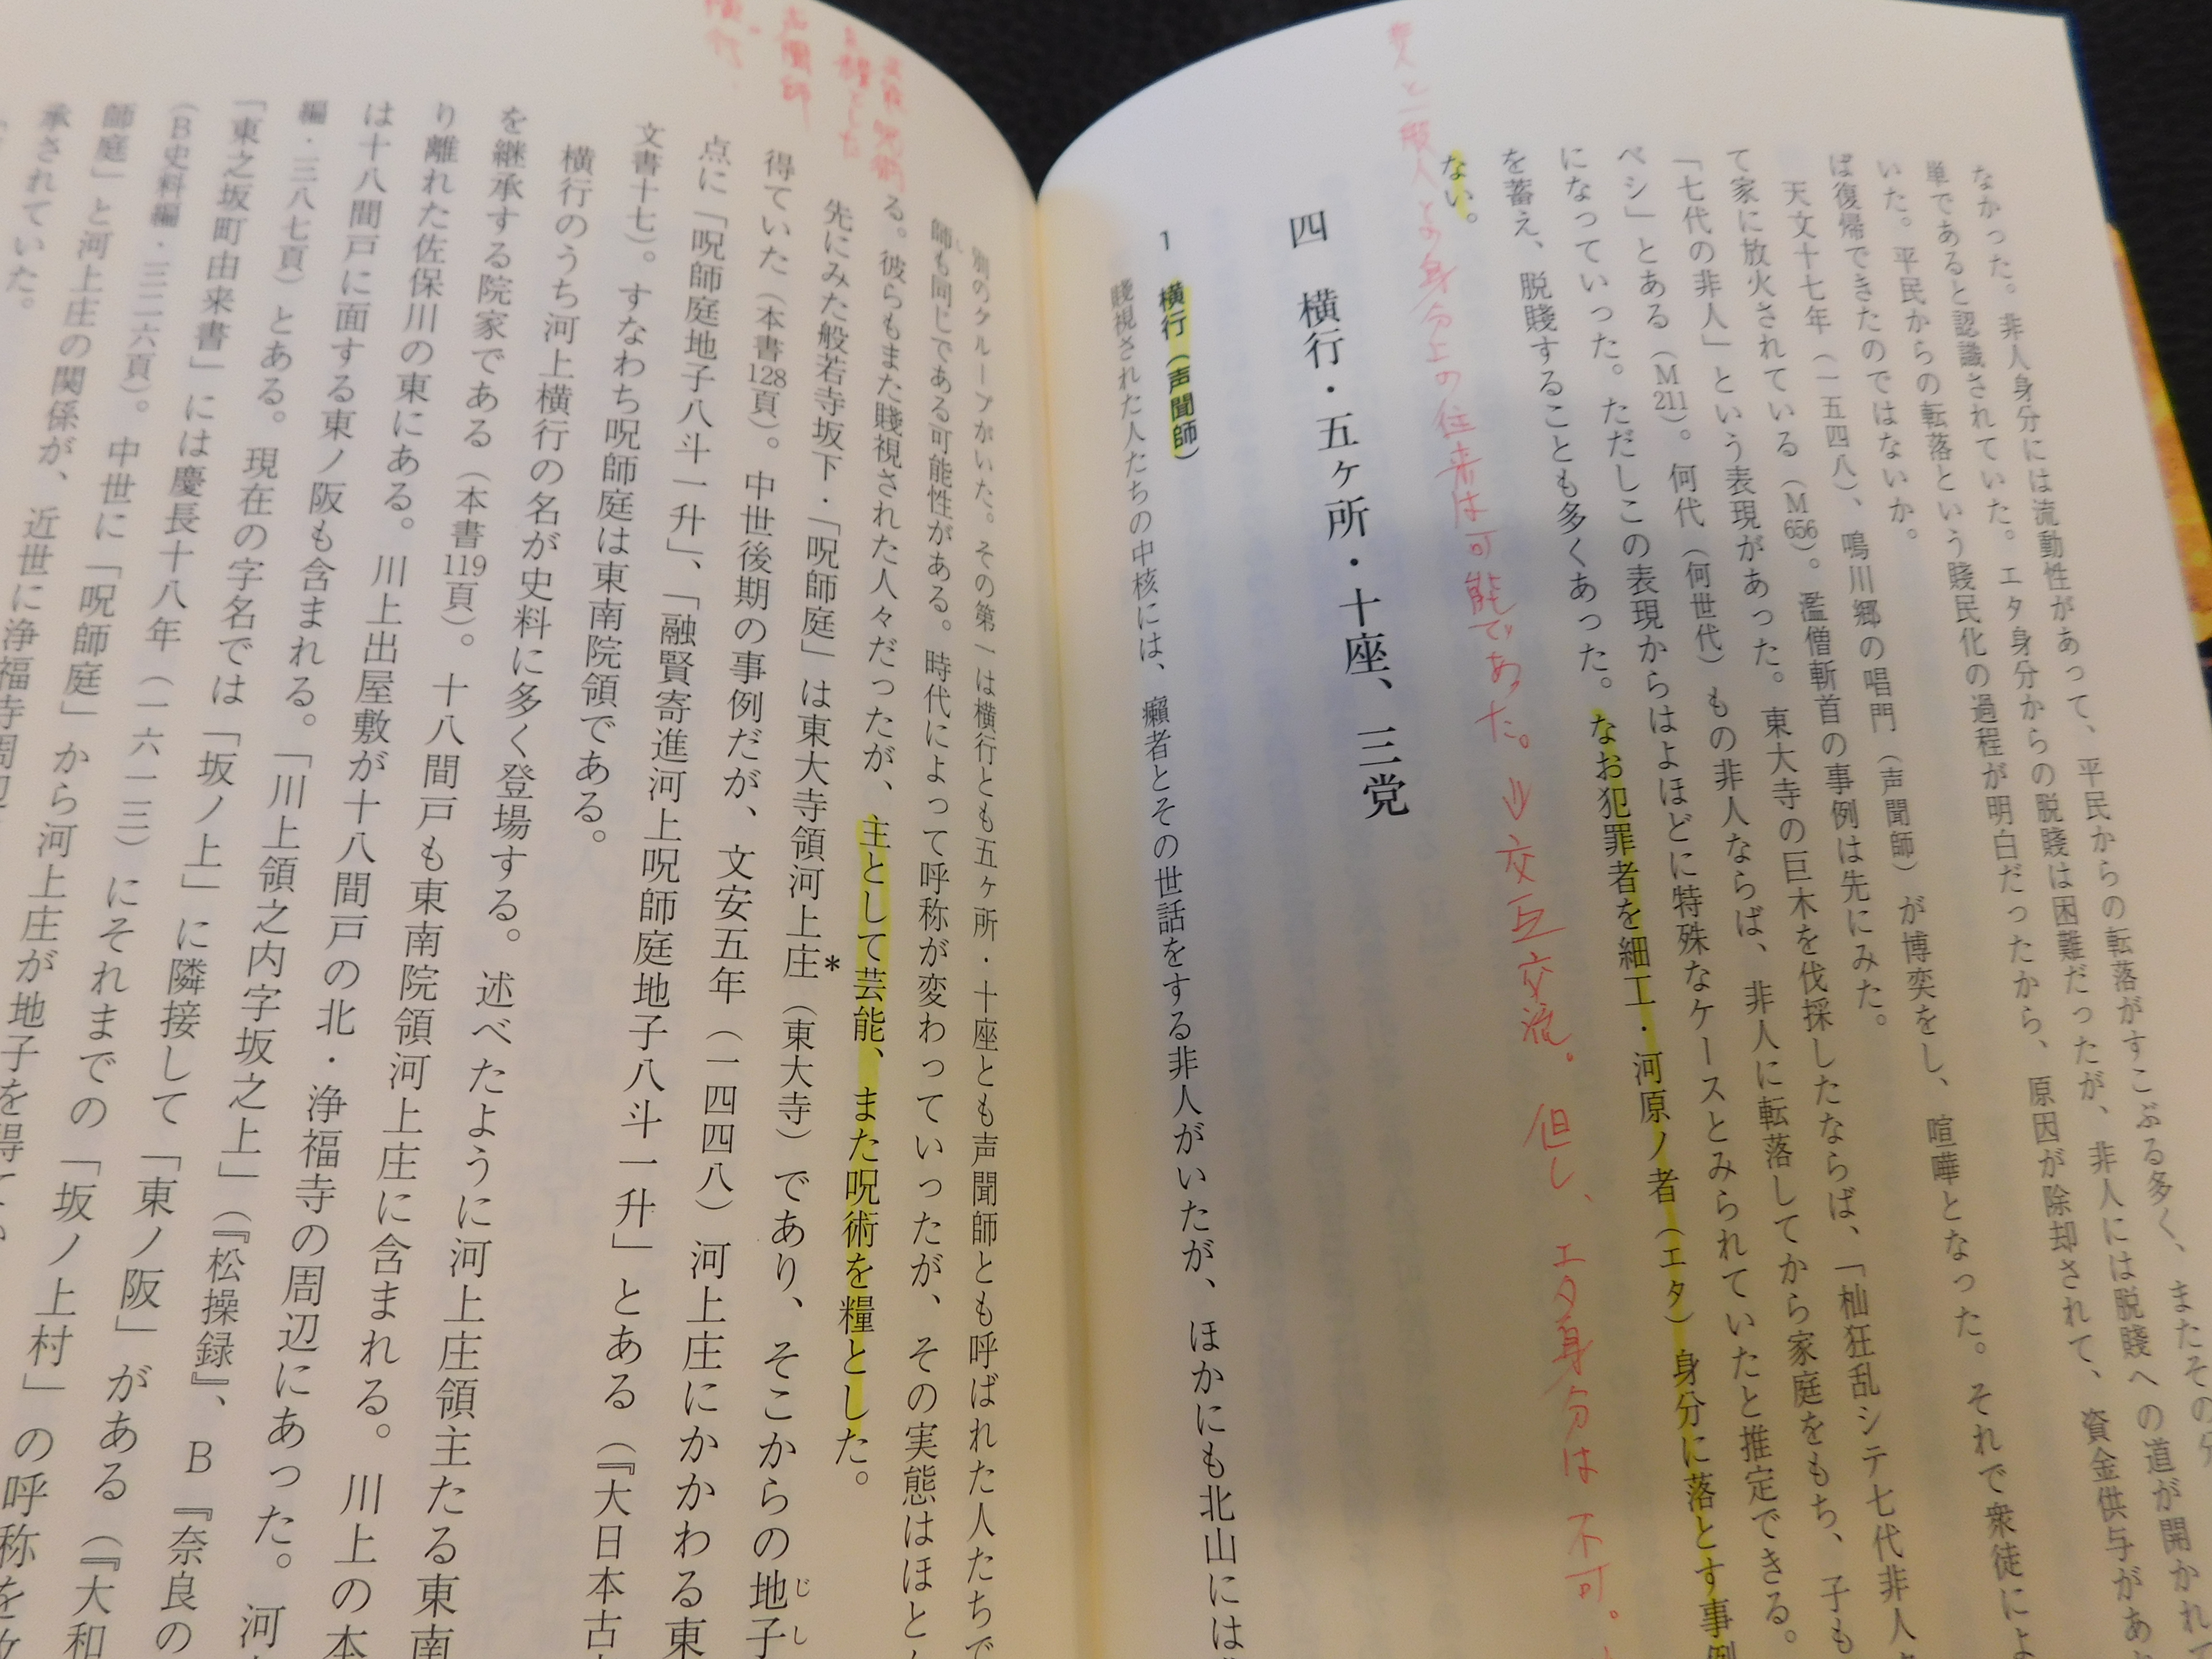 なかった。非人身分には流動性があって、平民からの転落がすこぶる多く、またその
単であると認識されていた。エタ身分からの脱賤は困難だったが、非人には脱賤への道が開かれて
いた。平民からの転落という賤民化の過程が明白だったから、原因が除却されて、資金供与があ
ば復帰できたのではないか。
天文十七年（一五四八）、鳴川郷の唱門（声聞師）が博奕をし、喧嘩となった。それで衆徒によ
て家に放火されている（M656）。濫僧斬首の事例は先にみた。
「七代の非人」という表現があった。東大寺の巨木を伐採したならば、「杣狂乱シテ七代非人
ベシ」とある（M211）。何代（何世代）もの非人ならば、非人に転落してから家庭をもち、子も
になっていった。ただしこの表現からはよほどに特殊なケースとみられていたと推定できる。
を蓄え、脱賤することも多くあった。なお犯罪者を細工・河原ノ者（エタ）身分に落とす事例
ない。
非人と一般人との身分上の往来は可能であった。⇒交互交流。但し、エタ身分は不可。
四 横行・五ヶ所・十座、三党
1 横行（声聞師）
賤視された人たちの中核には、癩者とその世話をする非人がいたが、ほかにも北山には
別のグループがいた。その第一は横行とも五ヶ所・十座とも声聞師とも呼ばれた人たちで
師も同じである可能性がある。時代によって呼称が変わっていったが、その実態はほとん
る。彼らもまた賤視された人々だったが、主として芸能、また呪術を糧とした。
先にみた般若寺坂下・「呪師庭」は東大寺領河上庄*（東大寺）であり、そこからの地子じし
得ていた（本書128頁）。中世後期の事例だが、文安五年（一四四八）河上庄にかかわる東
点に「呪師庭地子八斗一升」、「融賢寄進河上呪師庭地子八斗一升」とある（『大日本古
文書十七）。すなわち呪師庭は東南院領である。
横行のうち河上横行の名が史料に多く登場する。述べたように河上庄領主たる東南
を継承する院家である（本書119頁）。十八間戸も東南院領河上庄に含まれる。川上の本
り離れた佐保川の東にある。川上出屋敷が十八間戸の北・浄福寺の周辺にあった。河
は十八間戸に面する東ノ阪も含まれる。「川上領之内字坂之上」（『松操録』、B『奈良の
編・三八七頁）とある。現在の字名では「坂ノ上」に隣接して「東ノ阪」がある（『大和
「東之坂町由来書」には慶長十八年（一六一三）にそれまでの「坂ノ上村」の呼称を
（B史料編・三二六頁）。中世に「呪師庭」から河上庄が地子を得て
師庭」と河上庄の関係が、近世に浄福寺周辺
承されていた。
芸能 呪術
を糧とした
声聞師
横行